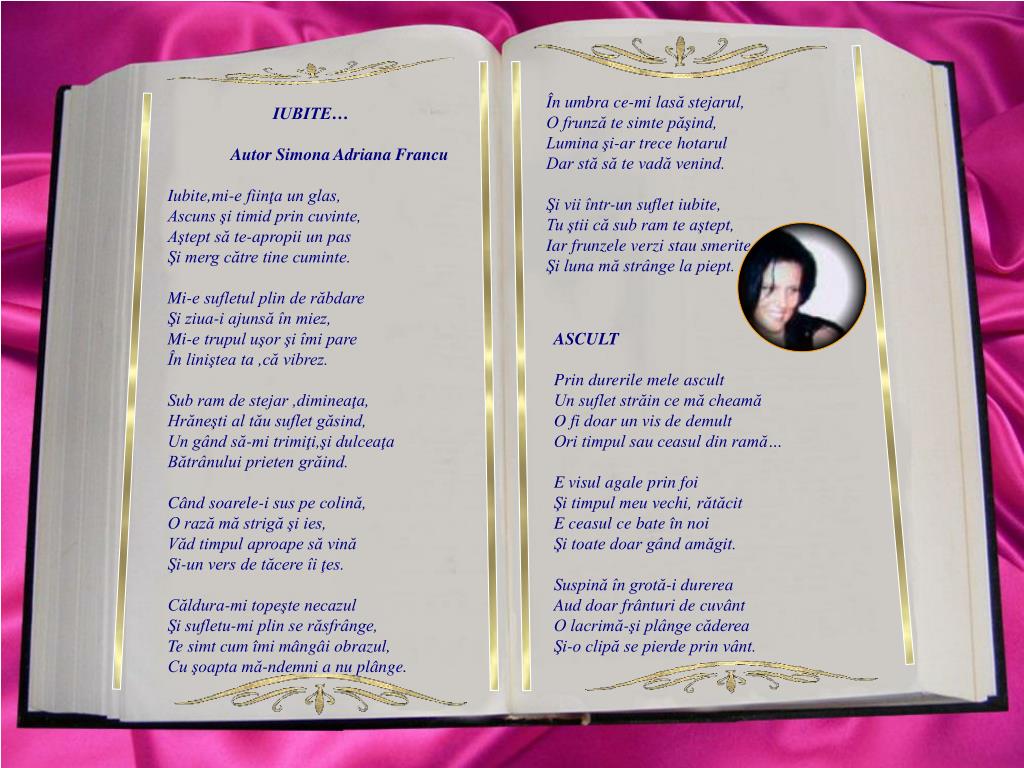 IUBITE…
Autor Simona Adriana Francu
Iubite,mi-e fiinţa un glas,
Ascuns şi timid prin cuvinte,
Aştept să te-apropii un pas
Şi merg către tine cuminte.
Mi-e sufletul plin de răbdare
Şi ziua-i ajunsă în miez,
Mi-e trupul uşor şi îmi pare
În liniştea ta ,că vibrez.
Sub ram de stejar ,dimineaţa,
Hrăneşti al tău suflet găsind,
Un gând să-mi trimiţi,şi dulceaţa
Bătrânului prieten grăind.
Când soarele-i sus pe colină,
O rază mă strigă şi ies,
Văd timpul aproape să vină
Şi-un vers de tăcere îi ţes.
Căldura-mi topeşte necazul
Şi sufletu-mi plin se răsfrânge,
Te simt cum îmi mângâi obrazul,
Cu şoapta mă-ndemni a nu plânge.
În umbra ce-mi lasă stejarul,
O frunză te simte păşind,
Lumina şi-ar trece hotarul
Dar stă să te vadă venind.
Şi vii într-un suflet iubite,
Tu ştii că sub ram te aştept,
Iar frunzele verzi stau smerite
Şi luna mă strânge la piept.
ASCULT
Prin durerile mele ascult
Un suflet străin ce mă cheamă
O fi doar un vis de demult
Ori timpul sau ceasul din ramă…
E visul agale prin foi
Şi timpul meu vechi, rătăcit
E ceasul ce bate în noi
Şi toate doar gând amăgit.
Suspină în grotă-i durerea
Aud doar frânturi de cuvânt
O lacrimă-şi plânge căderea
Şi-o clipă se pierde prin vânt.